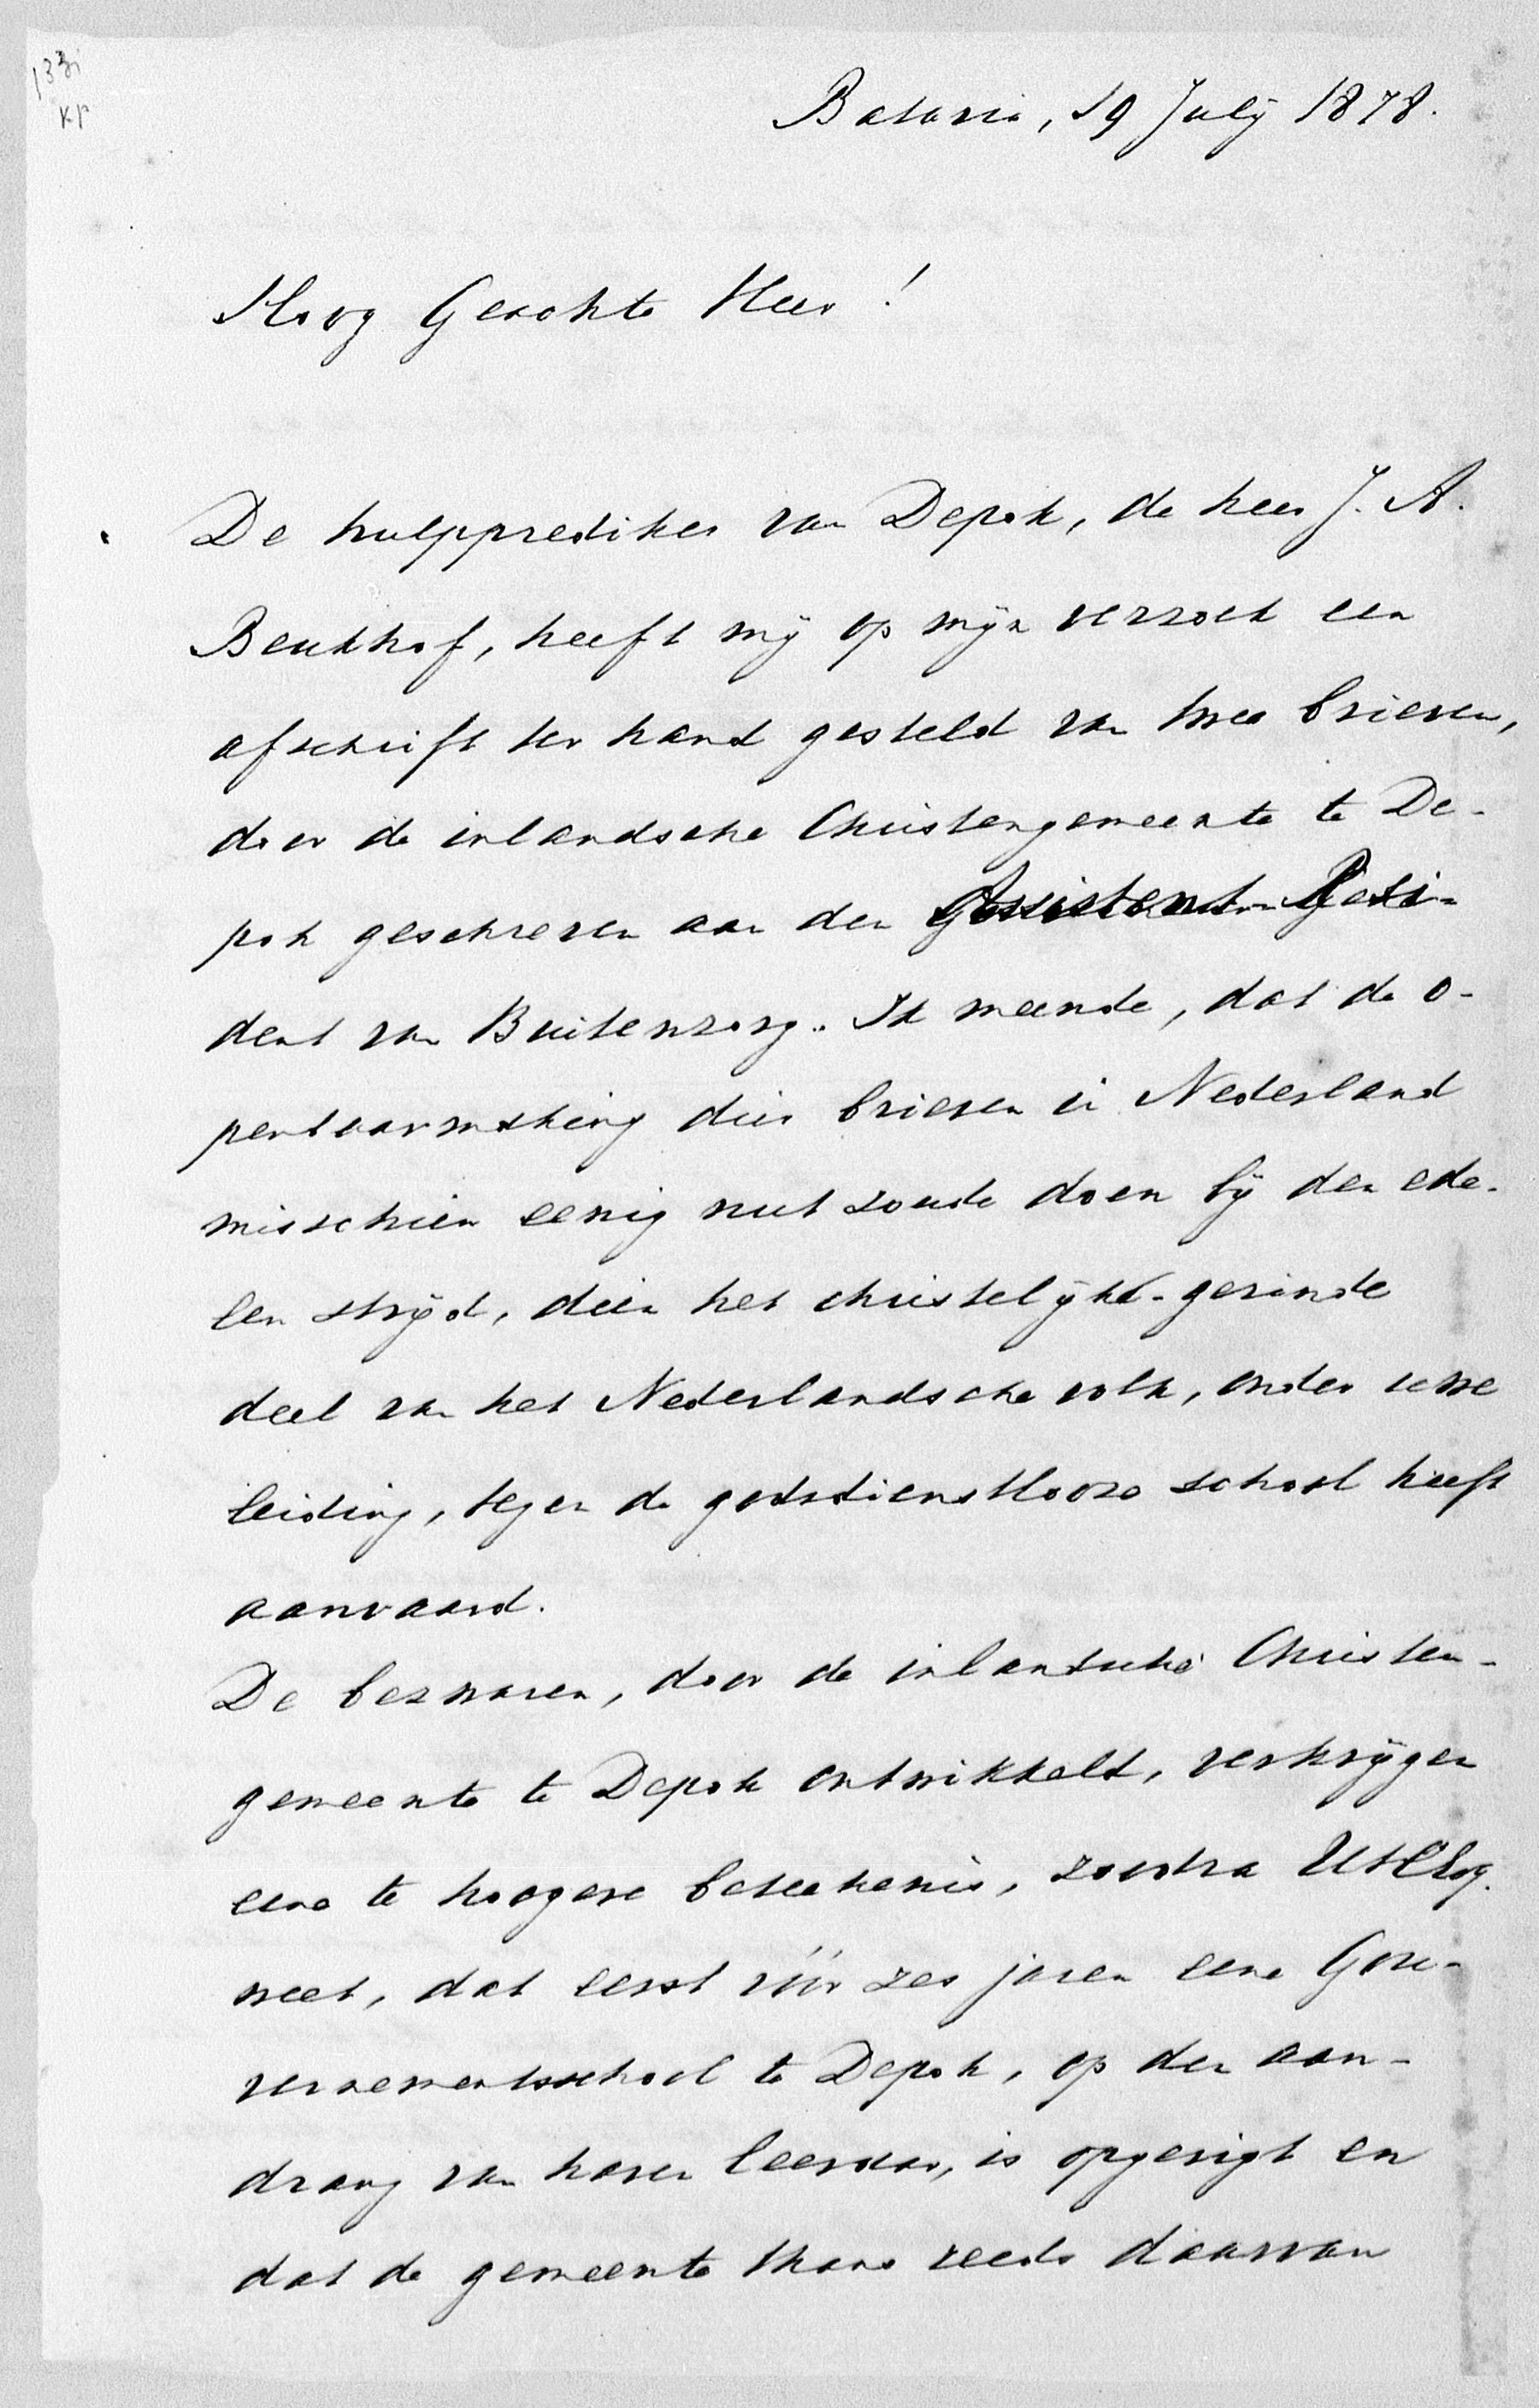 133i
KP
Batavia, 19 July 1878.
Hoog Geachte Heer!
De hulpprediker van Depok, de heer J. A.
Beukhof, heeft mij op mijn verzoek een
afschrift ter hand gesteld van twee brieven,
door de inlandsche Christengemeente te De-
pok geschreven aan den Assistent-Resi-
dent van Buitenzorg. Ik meende, dat de o-
penbaarmaking dier brieven in Nederland
misschien eenig nut zoude doen bij den ede-
len strijd, dien het christelijk-gezinde
deel van het Nederlandsche volk, onder uwe
leiding, tegen de godsdienstlooze school heeft
aanvaard.
De bezwaren, door de inlandsche Christen-
gemeente te Depok ontwikkeld, verkrijgen
eene te hoogere beteekenis, zoodra UHEdg.
weet, dat eerst vóór zes jaren eene Gou-
vernementsschool te Depok, op den aan-
drang van haren leeraar, is opgerigt en
dat de gemeente thans reeds daarvan